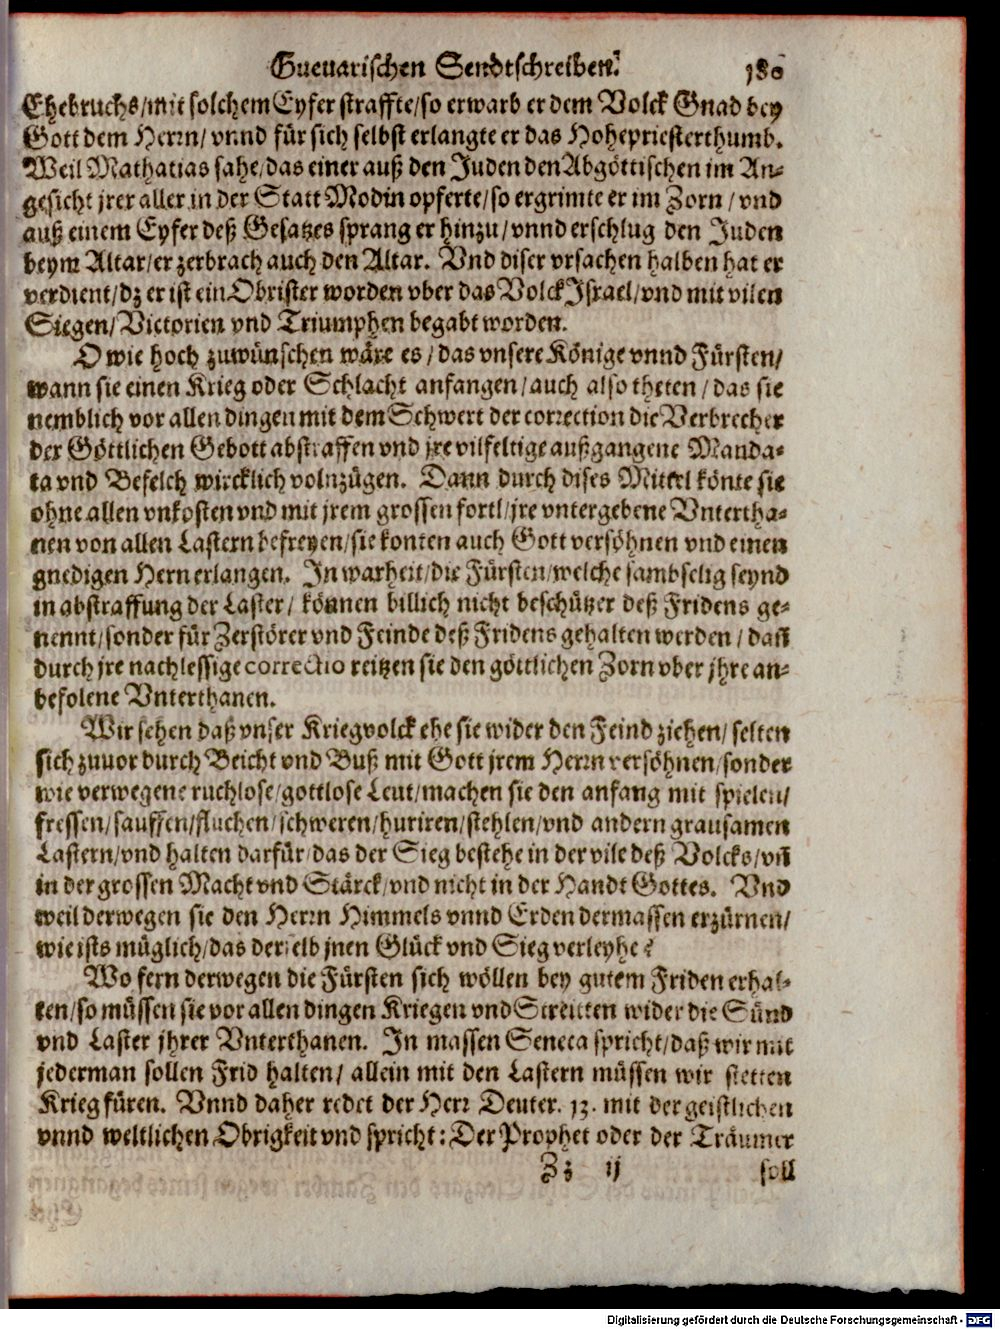 Guevarischen Sendtschreiben. 180
Ehebruchs/mit solchem Eyfer straffte/so erwarb er dem Volck Gnad bey
Gott dem Herrn/ vnnd für sich selbst erlangte er das Hohepriesterthumb.
Weil Mathatias sahe/das einer auß den Juden den Abgöttischen im An-
gesicht jrer aller in der Statt Modin opferte/so ergrimte er im Zorn / vnd
auß einem Eyfer deß Gesatzes sprang er hinzu/vnnd erschlug den Juden
beym Altar/er zerbrach auch den Altar. Vnd diser vrsachen halben hat er
verdient/dz er ist ein Obrister worden vber das Volck Israel/vnd mit vilen
Siegen/Victorien vnd Triumphen begabt worden.
O wie hoch zuwünschen wäre es/das vnsere Könige vnnd Fürsten/
wann sie einen Krieg oder Schlacht anfangen/auch also theten/das sie
nemblich vor allen dingen mit dem Schwert der correction die Verbrecher
der Göttlichen Gebott abstraffen vnd jre vilfeltige außgangene Manda-
ta vnd Befelch wircklich volnzügen. Dann durch dises Mittel könte sie
ohne allen vnkosten vnd mit jrem grossen fortl/jre vntergebene Vntertha-
nen von allen Lastern befreyen/sie konten auch Gott versöhnen vnd einen
gnedigen Hern erlangen. In warheit/die Fürsten/welche sambselig seynd
in abstraffung der Laster/ können billich nicht beschützer deß Fridens ge-
nennt/sonder für Zerstörer vnd Feinde deß Fridens gehalten werden/ dañ
durch jre nachlessige correctio reitzen sie den göttlichen Zorn vber jhre an-
befolene Vnterthanen.
Wir sehen daß vnser Kriegvolck ehe sie wider den Feind ziehen/ selten
sich zuuor durch Beicht vnd Buß mit Gott jrem Herrn versöhnen/sonder
wie verwegene ruchlose/gottlose Leut/machen sie den anfang mit spielen/
fressen/sauffen/fluchen/schweren/huriren/stehlen/vnd andern grausamen
Lastern/vnd halten darfür/das der Sieg bestehe in der vile deß Volcks/vñ
in der grossen Macht vnd Stärck/vnd nicht in der Handt Gottes. Vnd
weil derwegen sie den Herrn Himmels vnnd Erden dermassen erzürnen/
wie ists müglich/das derselb jnen Glück vnd Sieg verleyhe?
Wo fern derwegen die Fürsten sich wöllen bey gutem Friden erhal-
ten/so müssen sie vor allen dingen Kriegen vnd Streitten wider die Sünd
vnd Laster jhrer Vnterthanen. In massen Seneca spricht/daß wir mit
jederman sollen Frid halten/ allein mit den Lastern müssen wir stetten
Krieg füren. Vnnd daher redet der Herr Deuter. 13. mit der geistlichen
vnnd weltlichen Obrigkeit vnd spricht: Der Prophet oder der Träumer
Zz ij soll
Digitalisierung gefördert durch die Deutsche Forschungsgemeinschaft - DFG